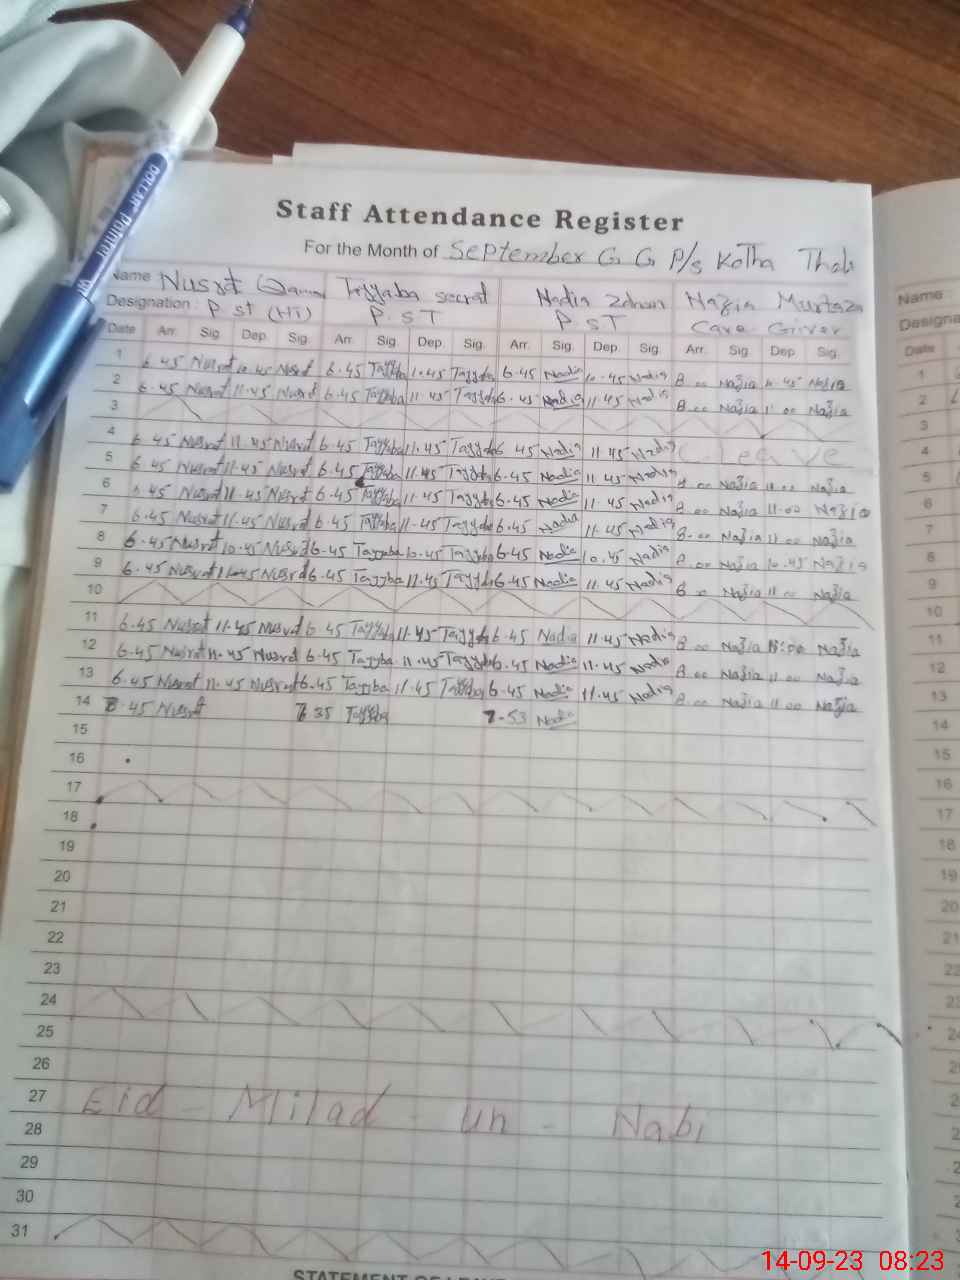 DOLLAR Pointer
Staff Attendance Register
For the Month of September G G P/s Kotha Thab
Name Nusrat Tayyaba Nadia Nazia Murtaza
Designation : P ST (HT) P.ST P ST Care Giver
Date Arr. Sig. Dep. Sig. Arr. Sig. Dep. Sig. Arr. Sig. Dep. Sig. Arr. Sig. Dep. Sig.
1 6.45 Nusrat 10.45 Nusrat 6.45 Tayyba 10.45 Tayyba 6.45 Nadia 10.45 Nadia 8.00 Nazia 10.45 Nazia
2 6.45 Nusrat 11.45 Nusrat 6.45 Tayyba 11.45 Tayyba 6.45 Nadia 11.45 Nadia 8.00 Nazia 11.00 Nazia
3
4 6.45 Nusrat 11.45 Nusrat 6.45 Tayyba 11.45 Tayyba 6.45 Nadia 11.45 Nadia C. Leave
5 6.45 Nusrat 11.45 Nusrat 6.45 Tayyba 11.45 Tayyba 6.45 Nadia 11.45 Nadia 8.00 Nazia 11.00 Nazia
6 6.45 Nusrat 11.45 Nusrat 6.45 Tayyba 11.45 Tayyba 6.45 Nadia 11.45 Nadia 8.00 Nazia 11.00 Nazia
7 6.45 Nusrat 11.45 Nusrat 6.45 Tayyba 11.45 Tayyba 6.45 Nadia 11.45 Nadia 8.00 Nazia 11.00 Nazia
8 6.45 Nusrat 10.45 Nusrat 6.45 Tayyba 10.45 Tayyba 6.45 Nadia 10.45 Nadia 8.00 Nazia 10.45 Nazia
9 6.45 Nusrat 11.45 Nusrat 6.45 Tayyba 11.45 Tayyba 6.45 Nadia 11.45 Nadia 8.00 Nazia 11.00 Nazia
10
11 6.45 Nusrat 11.45 Nusrat 6.45 Tayyba 11.45 Tayyba 6.45 Nadia 11.45 Nadia 8.00 Nazia 11.00 Nazia
12 6.45 Nusrat 11.45 Nusrat 6.45 Tayyba 11.45 Tayyba 6.45 Nadia 11.45 Nadia 8.00 Nazia 11.00 Nazia
13 6.45 Nusrat 11.45 Nusrat 6.45 Tayyba 11.45 Tayyba 6.45 Nadia 11.45 Nadia 8.00 Nazia 11.00 Nazia
14 45 Nusrat 7 35 Tayyba 7.53 Nadia
15
16
17
18
19
20
21
22
23
24
25
26
27 Eid - Milad - un - Nabi
28
29
30
31
Name
Date
1
2
3
4
5
6
7
8
9
10
11
12
13
14
15
16
17
18
19
20
21
22
14-09-23 08:23